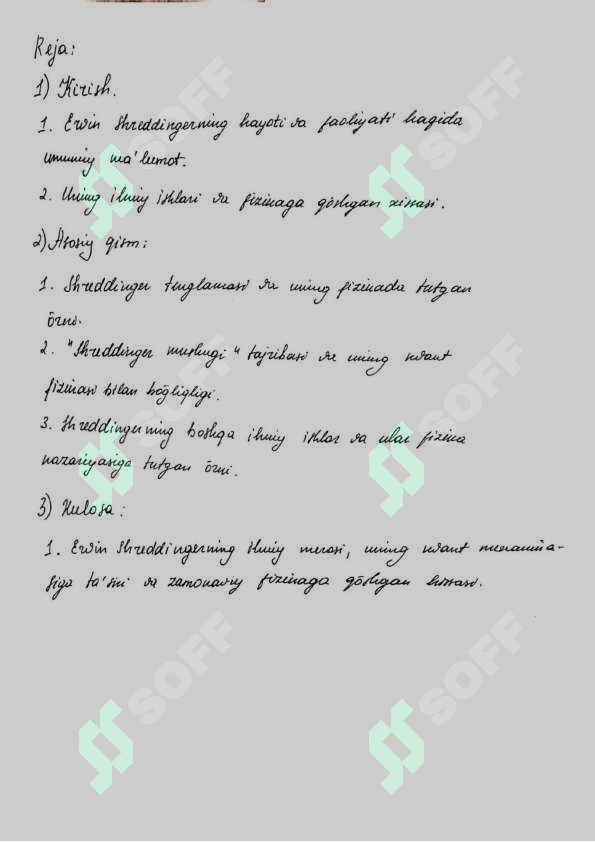 Reja:
1) Kirish.
1. Erwin Shreddingerning hayoti va faoliyati haqida
umumiy ma'lumot.
2. Uning ilmiy ishlari va fizikaga qõshgan xissasi.
2) Asosiy qism:
1. Shreddinger tenglamasi va uning fizikada tutgan
õrni.
2. "Shreddinger mushugi" tajribasi va uning kvant
fizikasi bilan bõgliqligi.
3. Shreddingerning boshqa ilmiy ishlar va ular fizika
nazariyasiga tutgan õrni.
3) Xulosa:
1. Erwin Shreddingerning ilmiy merosi, uning kvant mexanika-
siga ta'siri va zamonaviy fizikaga qõshgan hissasi.
SOFF
SOFF
SOFF
SOFF
SOFF
SOFF